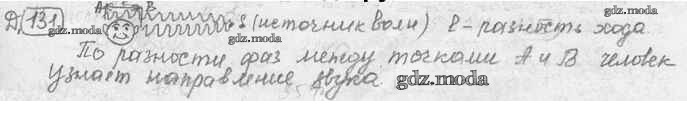 Д. 131 А В S (источник волн) ℓ - разность хода
По разности фаз между точками А и В человек
узнаёт направление звука.
gdz.moda
gdz.moda
gdz.moda
gdz.moda
gdz.moda
gdz.moda